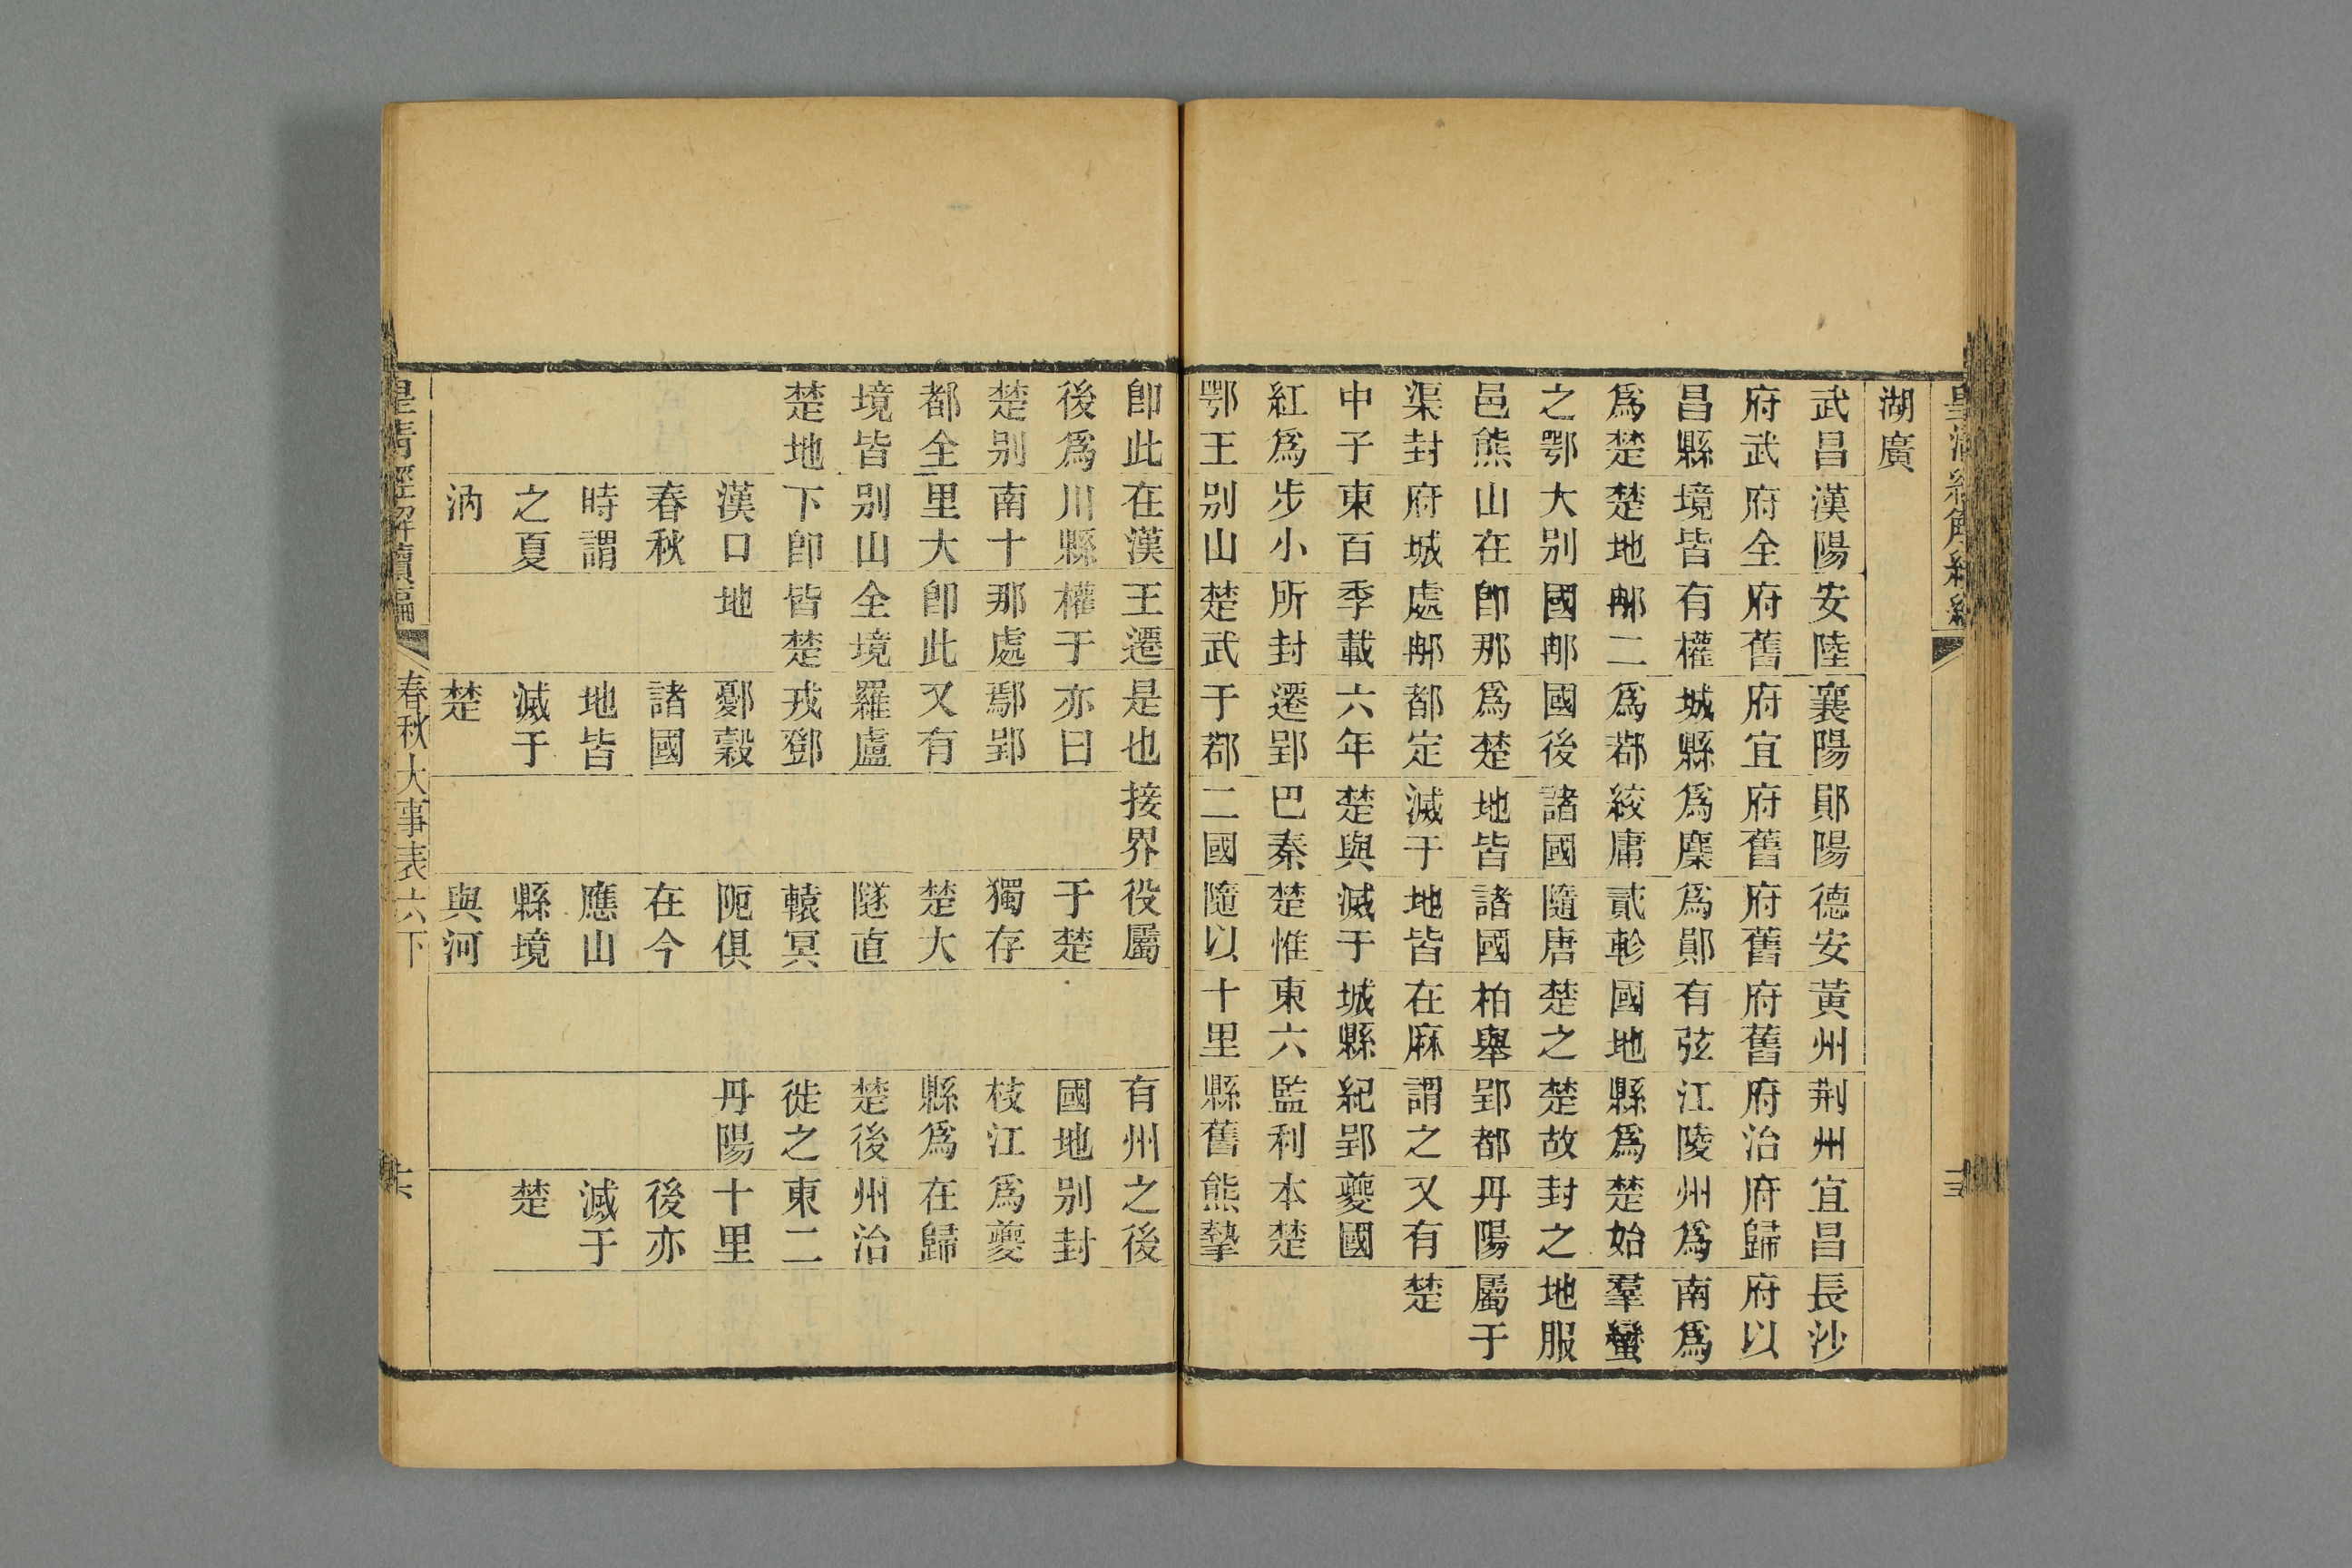 皇清經解續編
湖廣
武昌漢陽安陸襄陽鄖陽德安黃州荆州宜昌長沙
府武府全府舊府宜府舊府舊府舊府治府歸府以
昌縣境皆有權城縣爲麇爲鄖有弦江陵州爲南爲
爲楚楚地𨙻二爲鄀絞庸貳軫國地縣爲楚始羣蠻
之鄂大别國𨙻國後諸國隨唐楚之楚故封之地服
邑熊山在卽那爲楚地皆諸國柏舉郢都丹陽屬于
渠封府城處𨙻都定滅于地皆在麻謂之又有楚
中子東百季載六年楚與滅于城縣紀郢夔國
紅爲步小所封遷郢巴秦楚惟東六監利本楚
鄂王别山楚武于鄀二國隨以十里縣舊熊摯
卽此在漢王遷是也接界役屬有州之後
後爲川縣權于亦曰于楚國地别封
楚别南十那處鄢郢獨存枝江爲夔
都全里大卽此又有楚大縣爲在歸
境皆别山全境羅盧隧直楚後州治
楚地下卽皆楚戎鄧轅冥徙之東二
漢口地鄾穀阨俱丹陽十里
春秋諸國在今後亦
時謂地皆應山滅于
之夏滅于縣境楚
汭楚與河
皇清經解續編 春秋大事表六下